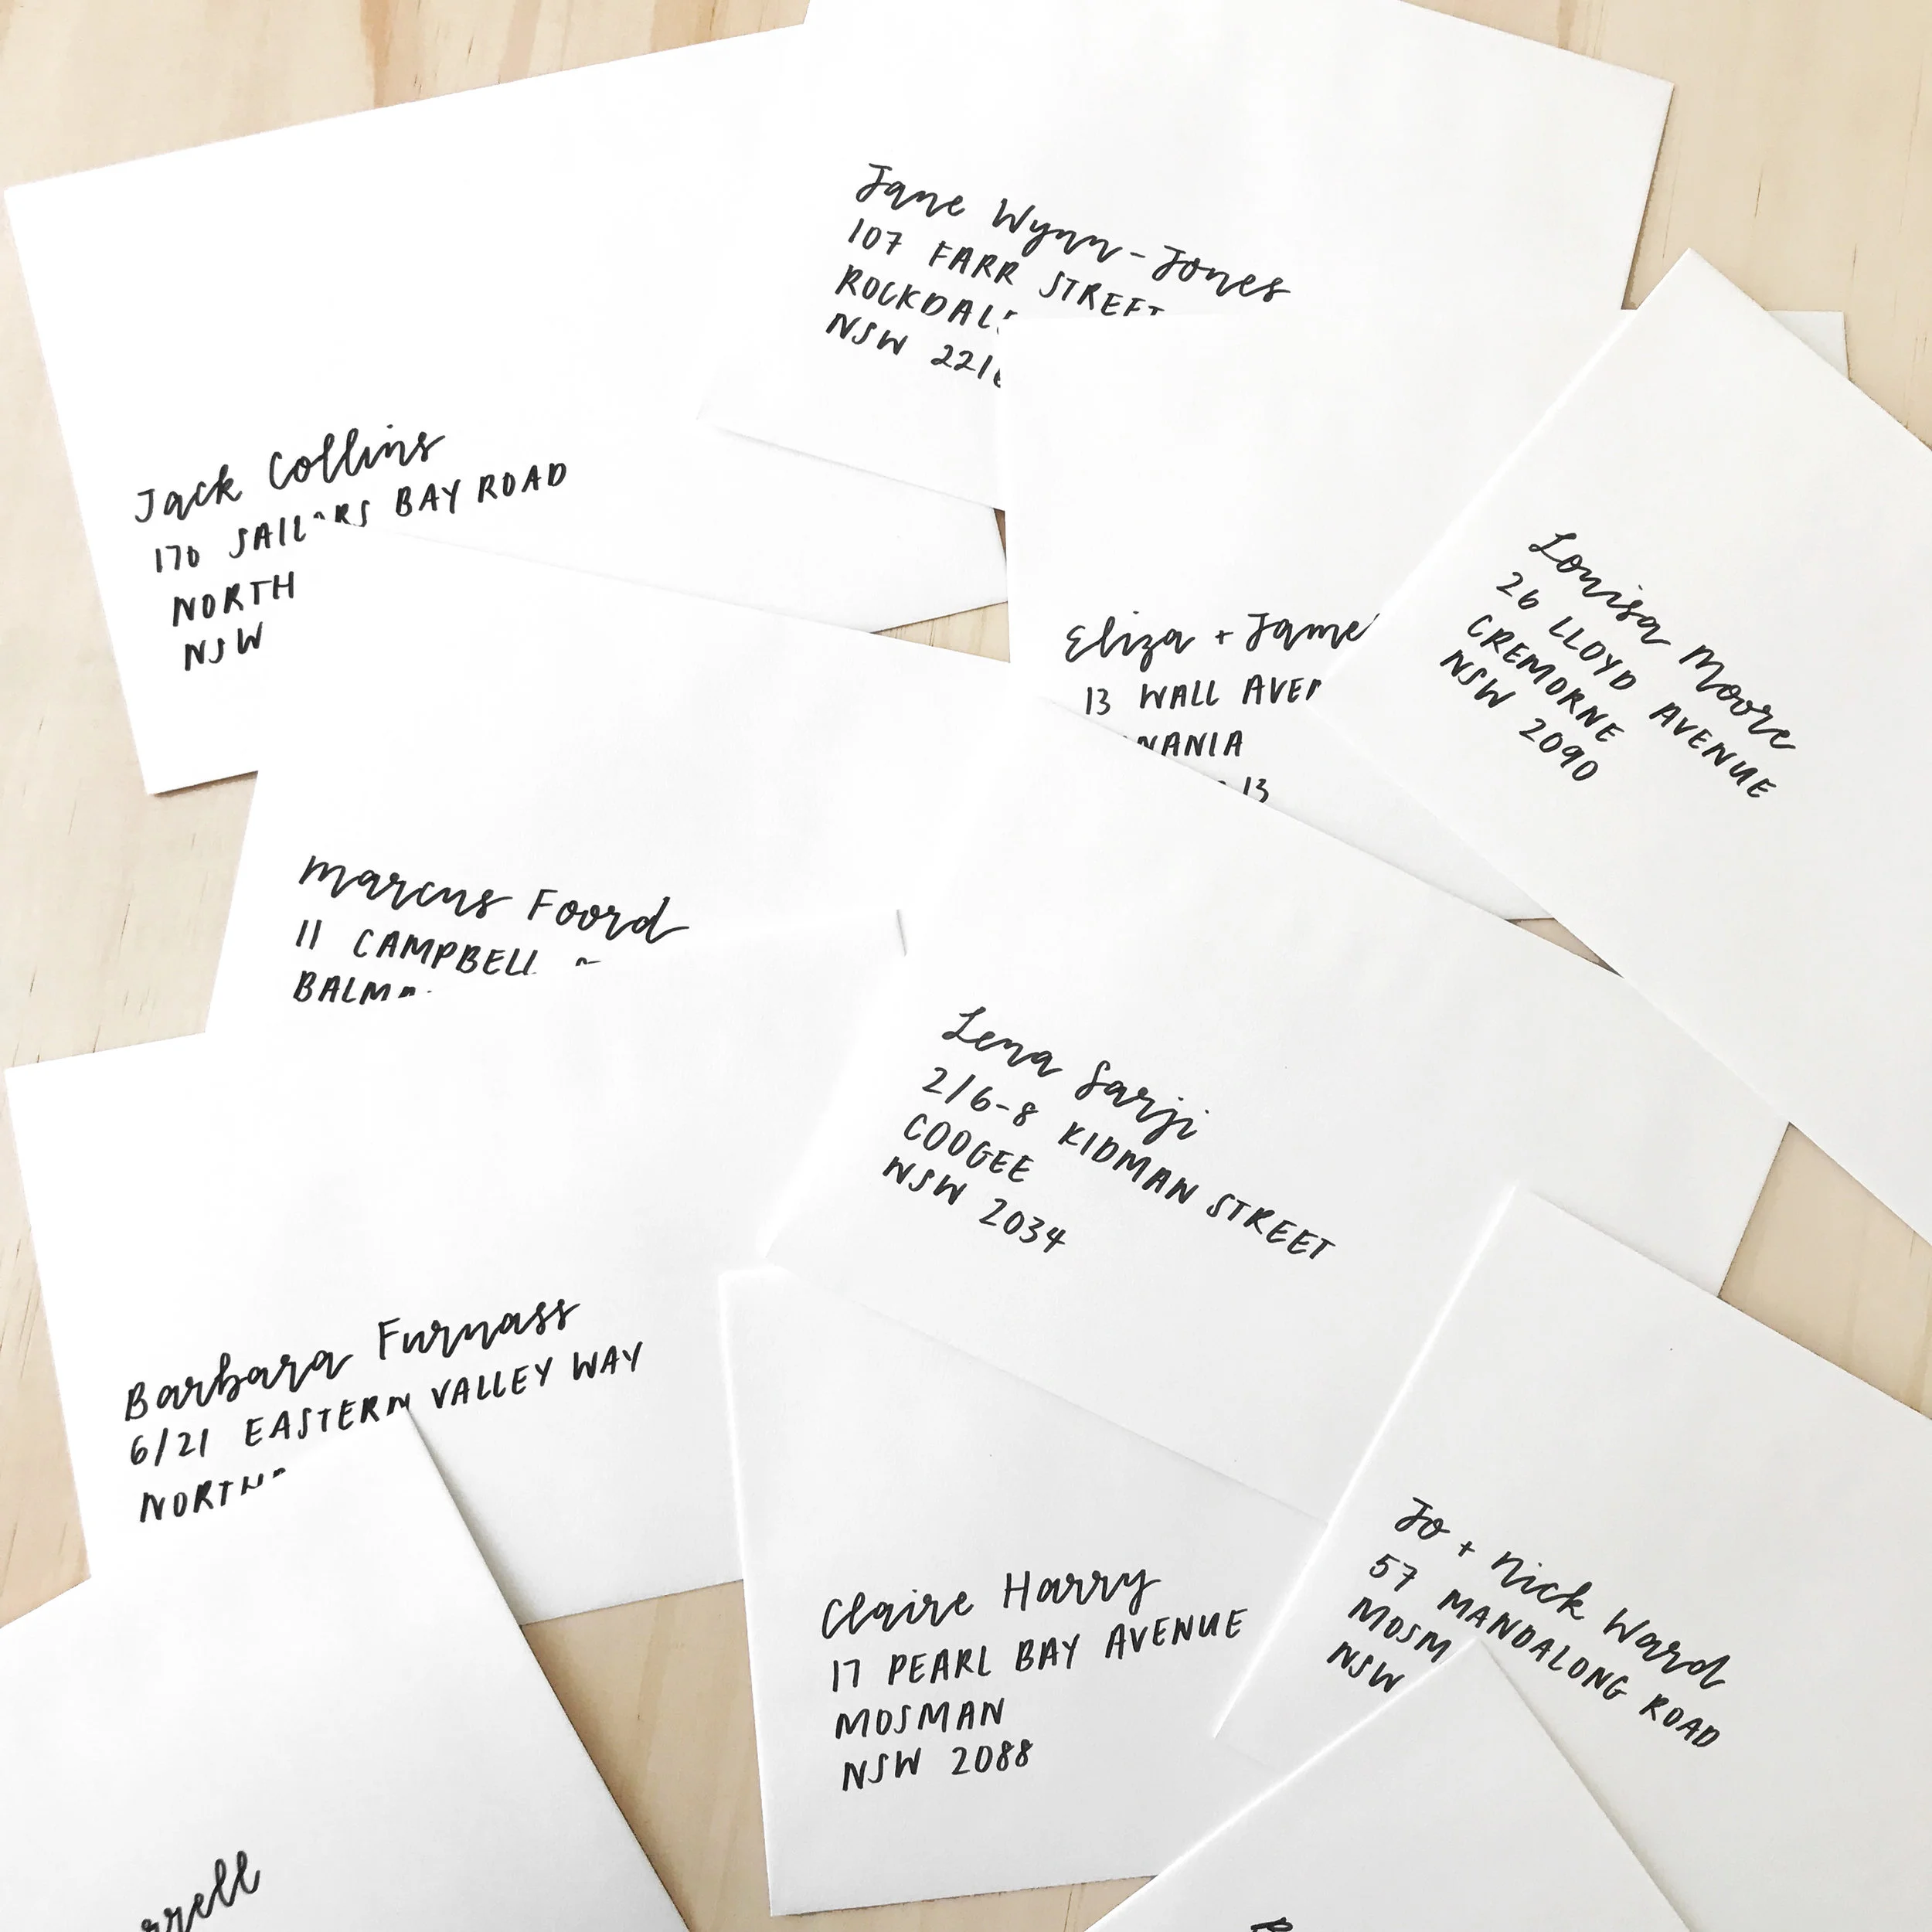 Jane Wynn-Jones
107 FARR STREET
ROCKDALE
NSW 221
Jack Collins
170 SAILORS BAY ROAD
NORTH
NSW
Eliza + Jame
13 WALL AVE
NANIA
13
Louisa Moore
26 LLOYD AVENUE
CREMORNE
NSW 2090
Marcus Foord
11 CAMPBELL
BALM
Lena Sarji
2/6-8 KIDMAN STREET
COOGEE
NSW 2034
Barbara Furnass
6/21 EASTERN VALLEY WAY
NORTH
Claire Harry
17 PEARL BAY AVENUE
MOSMAN
NSW 2088
Jo + Nick Ward
57 MANDALONG ROAD
MOSM
NSW
rrell